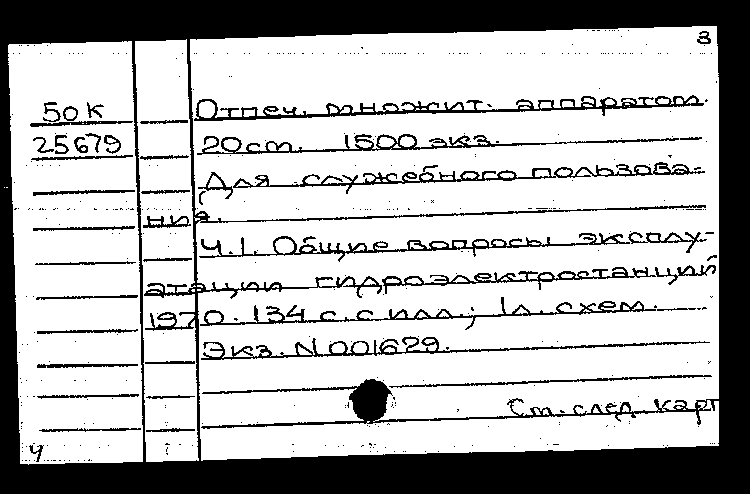 3
50К Отпеч. множит. аппаратом.
25679 20 cm. 1500 экз.
Для служебного пользова-
ния.
Ч.1. Общие вопросы эксплу-
атации гидроэлектростанций
1970. 134 с. с илл.; 1л. схем.
Экз. N 001629.
См. след. карт
4